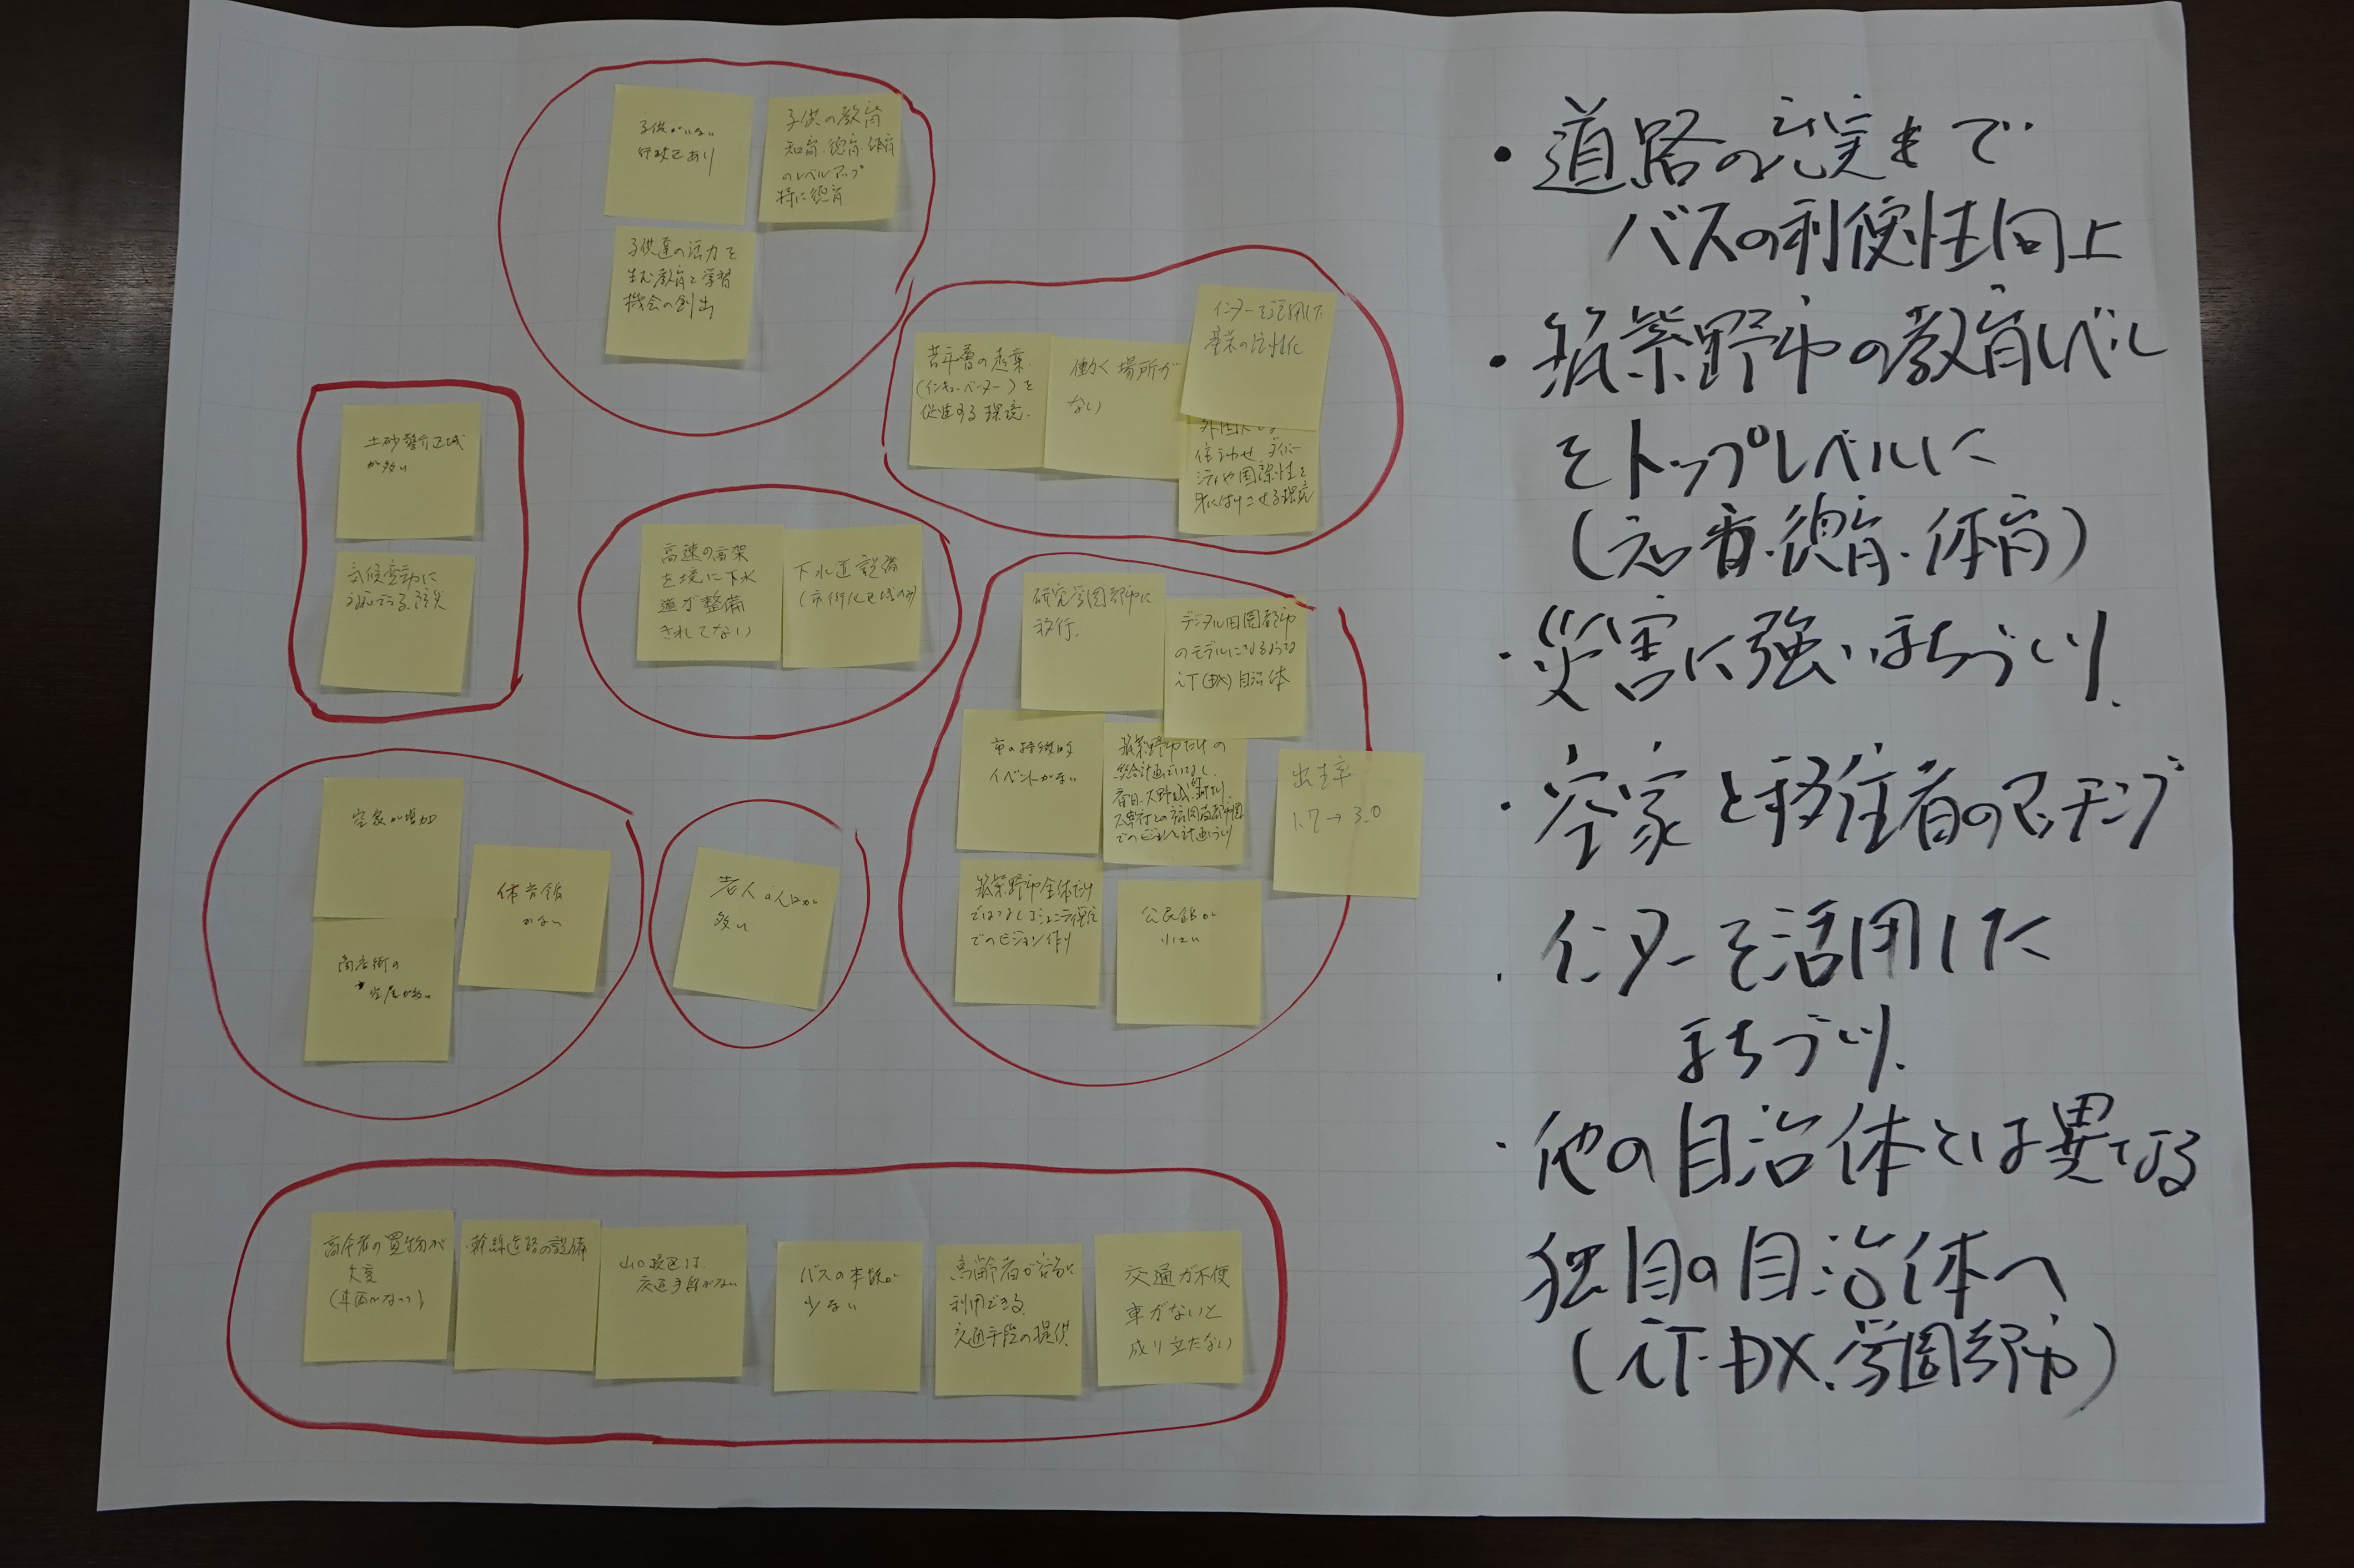 子供がいない
行政区あり
子供の教育
知育・徳育・体育
のレベルアップ
特に徳育
子供達の活力を
生む教育と学習
機会の創出
若年層の起業
(インキューベーター)を
促進する環境.
働く場所が
ない
インターを活用した
産業の活性化
外国人も
住わせ ダイバー
シティや国際性を
身につけさせる環境
土砂警戒区域
が多い
気候変動に
対応できる防災
高速の高架
を境に下水
道が整備
されてない
下水道設備
(市街化区域のみ)
研究学園都市に
移行.
デジタル田園都市
のモデルになるような
iT(DX)自治体
市の特徴的
イベントがない
筑紫野市だけの
総合計画でなく、
春日、大野城、
でのビジョンと計画づくり
出生率
1.7→3.0
筑紫野市全体だけ
ではなくコミュニティ単位
でのビジョン作り
公民館が
小さい
空家が増加
体育館
がない
商店街の
空店が多い
老人の人口が
多い
高令者の買物が
大変
(車がない)
幹線道路の設備
山口校区は
交通手段がない
バスの本数が
少ない
高齢者が容易に
利用できる
交通手段の提供
交通が不便
車がないと
成り立たない
・道路の充実まで
バスの利便性向上
・筑紫野市の教育レベル
をトップレベルに
(知育・徳育・体育)
・災害に強いまちづくり.
・空家と移住者のマッチング
・インターを活用した
まちづくり.
・他の自治体とは異なる
独自の自治体へ
(iT・DX、学園都市)